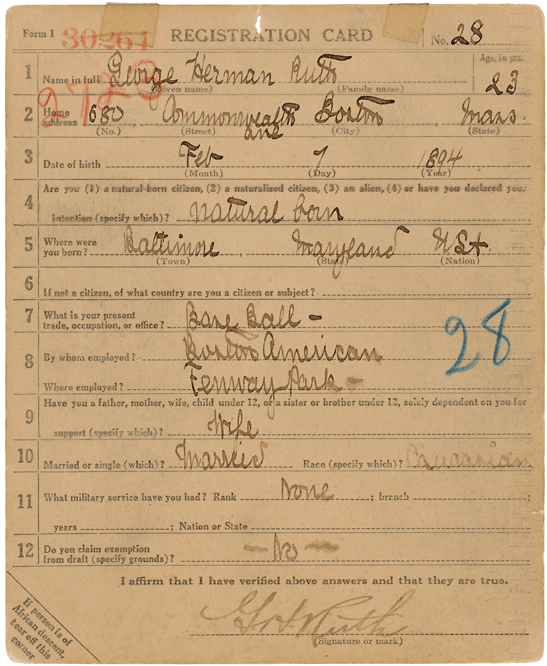 Form 1 30264 REGISTRATION CARD No. 28
1 Name in full George Herman Ruth Age, in yrs. 23
(Given name) (Family name)
2 Home address 680 Commonwealth Ave Boston Mass.
(No.) (Street) (City) (State)
3 Date of birth Feb 7 1894
(Month) (Day) (Year)
4 Are you (1) a natural-born citizen, (2) a naturalized citizen, (3) an alien, (4) or have you declared your
intention (specify which)? natural born
5 Where were you born? Baltimore Maryland USA
(Town) (State) (Nation)
6 If not a citizen, of what country are you a citizen or subject?
7 What is your present trade, occupation, or office? Base Ball -
8 By whom employed? Boston American
Where employed? Fenway Park -
28
9 Have you a father, mother, wife, child under 12, or a sister or brother under 12, solely dependent on you for
support (specify which)? Wife
10 Married or single (which)? Married Race (specify which)? Caucasian
11 What military service have you had? Rank None ; branch ;
years ; Nation or State
12 Do you claim exemption from draft (specify grounds)? - No -
I affirm that I have verified above answers and that they are true.
If person is of
African descent,
tear off this
corner
(Signature or mark)